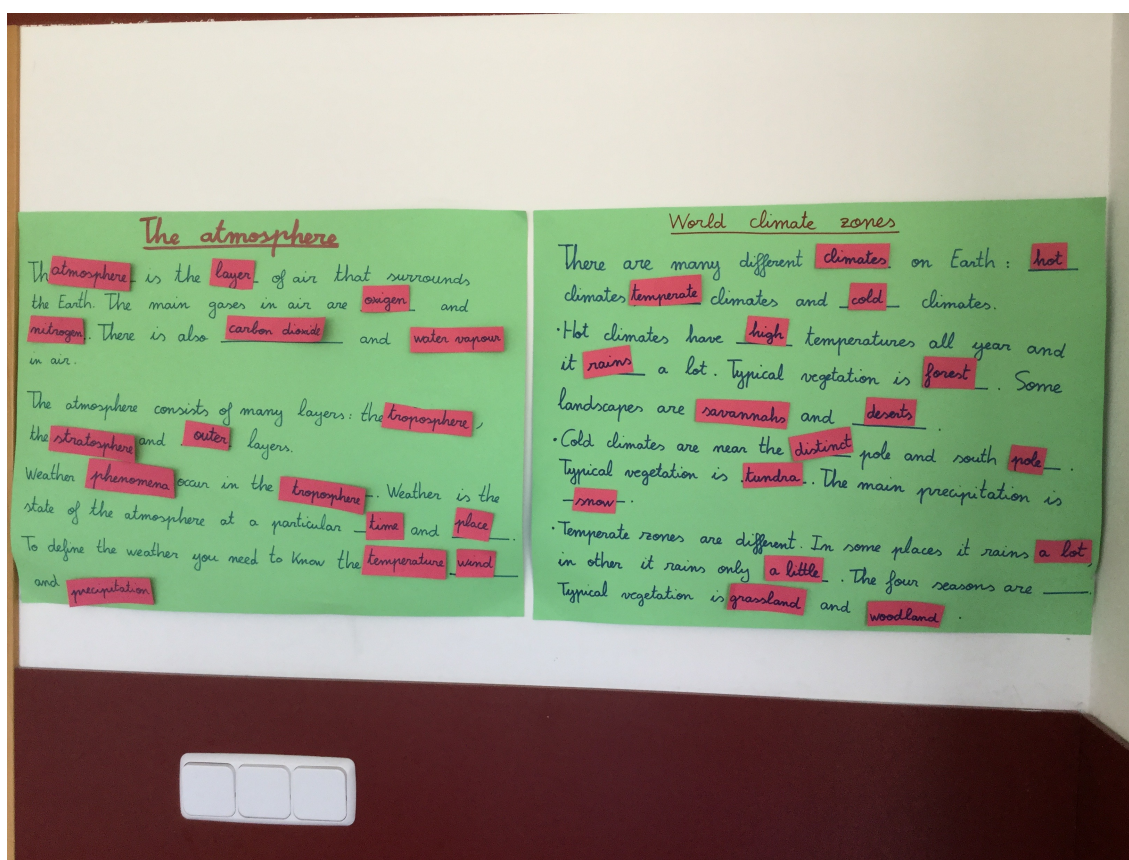 The atmosphere
Th atmosphere is the layer of air that surrounds
the Earth. The main gases in air are oxigen and
nitrogen. There is also carbon dioxide and water vapour
in air.
The atmosphere consists of many layers: the troposphere,
the stratosphere and outer layers.
Weather phenomena occur in the troposphere. Weather is the
state of the atmosphere at a particular time and place.
To define the weather you need to know the temperature wind
and precipitation
World climate zones
There are many different climates on Earth: hot
climates temperate climates and cold climates.
·Hot climates have high temperatures all year and
it rains a lot. Typical vegetation is forest. Some
landscapes are savannahs and deserts.
·Cold climates are near the distinct pole and south pole.
Typical vegetation is tundra. The main precipitation is
snow.
·Temperate zones are different. In some places it rains a lot,
in other it rains only a little. The four seasons are ___.
Typical vegetation is grassland and woodland.